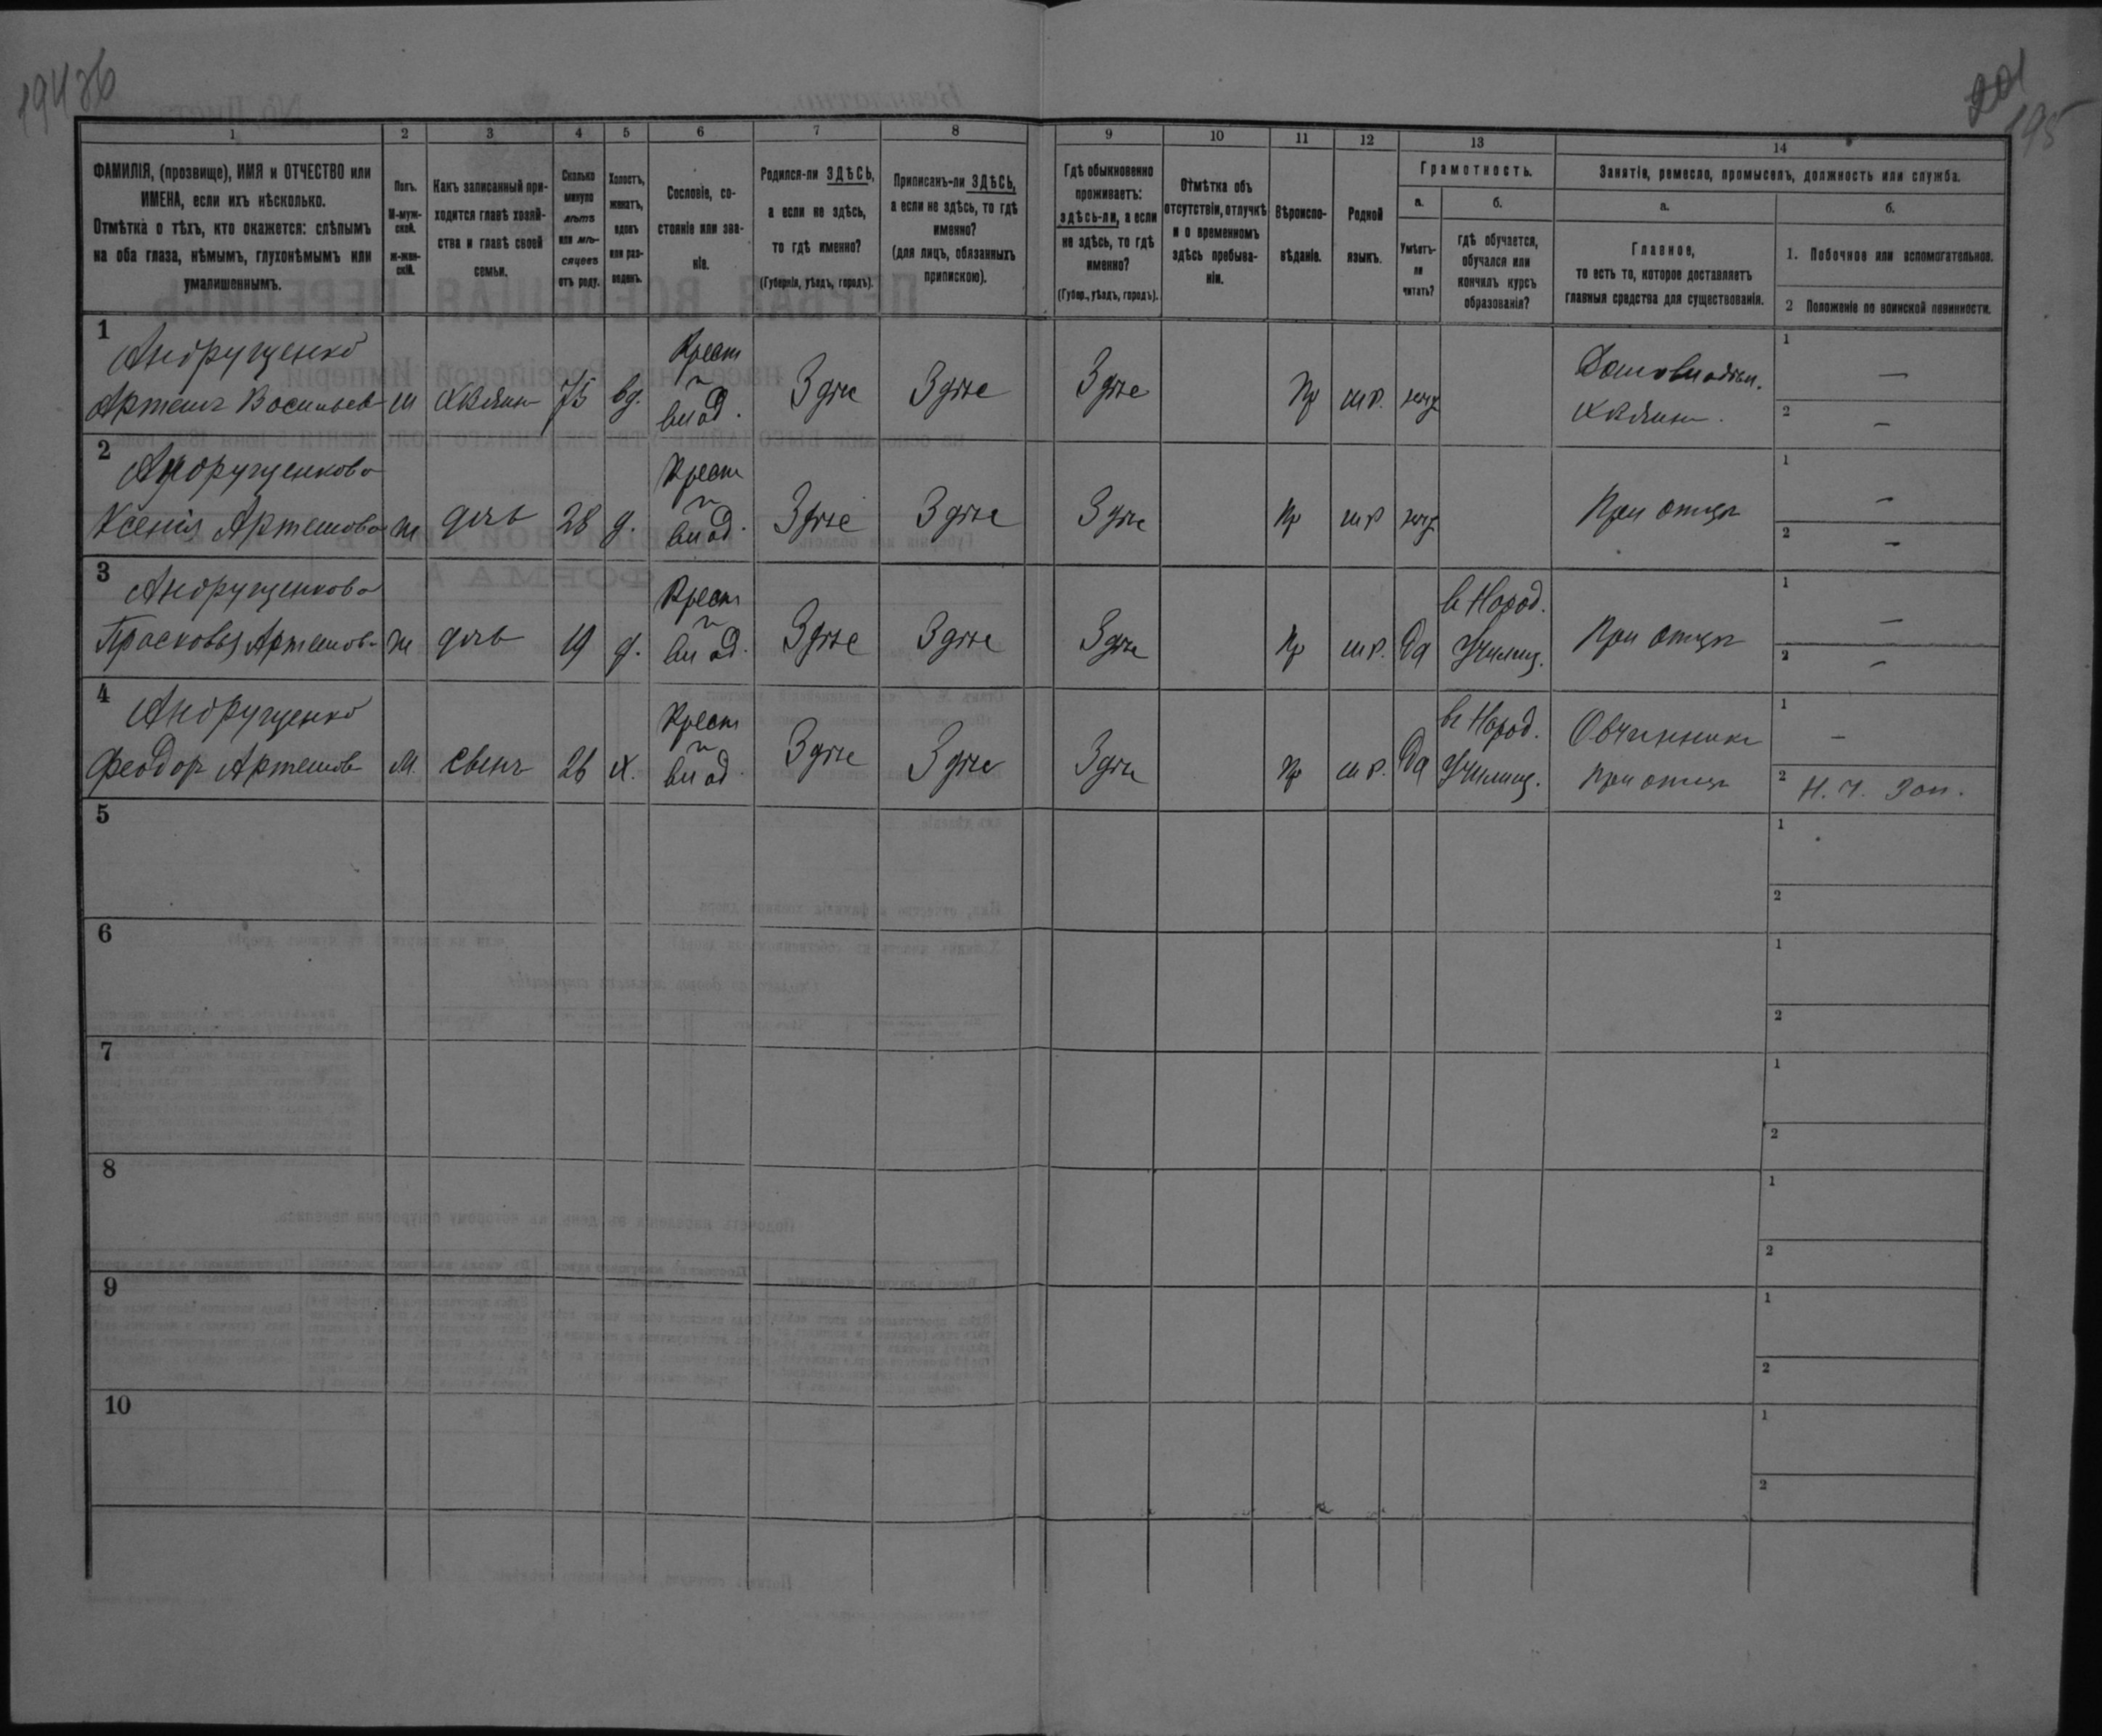 194 об
201
195
1
2
3
4
5
6
7
8
9
10
11
12
13
14
ФАМИЛІЯ, (прозвище), ИМЯ и ОТЧЕСТВО или
ИМЕНА, если ихъ нѣсколько.
Отмѣтка о тѣхъ, кто окажется: слѣпымъ
на оба глаза, нѣмымъ, глухонѣмымъ или
умалишеннымъ.
Полъ.
М-муж-
ской.
ж-жен-
скій.
Какъ записанный при-
ходится главѣ хозяй-
ства и главѣ своей
семьи.
Сколько
минуло
лѣтъ
или мѣ-
сяцевъ
отъ роду.
Холостъ,
женатъ,
вдовъ
или раз-
веденъ.
Сословіе, со-
стояніе или зва-
ніе.
Родился-ли ЗДѢСЬ,
а если не здѣсь,
то гдѣ именно?
(Губернія, уѣздъ, городъ).
Приписанъ-ли ЗДѢСЬ,
а если не здѣсь, то гдѣ
именно?
(для лицъ, обязанныхъ
припискою).
Гдѣ обыкновенно
проживаетъ:
здѣсь-ли, а если
не здѣсь, то гдѣ
именно?
(Губер., уѣздъ, городъ).
Отмѣтка объ
отсутствіи, отлучкѣ
и о временномъ
здѣсь пребыва-
ніи.
Вѣроиспо-
вѣданіе.
Родной
языкъ.
Грамотность.
а.
Умѣетъ-
ли
читать?
б.
гдѣ обучается,
обучался или
кончилъ курсъ
образованія?
Занятія, ремесло, промыселъ, должность или служба.
а.
Главное,
то есть то, которое доставляетъ
главныя средства для существованія.
б.
1. Побочное или вспомогательное.
2 Положеніе по воинской повинности.
1
Андрущенко
Артемъ Васильев м Хозяин 75 вд. Крест. и влад. Здѣсь Здѣсь Здѣсь Пр м.р. нет Домовладѣл. Хозяин. 1 — 2 —
2
Андрущенкова
Ксенія Артемова ж дочь 28 д. Крест и влад. Здѣсь Здѣсь Здѣсь Пр м.р нет При отцѣ 1 — 2 —
3
Андрущенкова
Прасковья Артемов. ж дочь 19 д. Крест и влад. Здѣсь Здѣсь Здѣсь Пр м.р. Да в Народ. Училищ. При отцѣ 1 — 2 —
4
Андрущенко
Феодор Артемов М. сынъ 26 х. Крест и влад. Здѣсь Здѣсь Здѣсь Пр м.р. Да в Народ. Училищ. Овчинник при отцѣ 1 — 2 Н. Ч. Зап.
5
1
2
6
1
2
7
1
2
8
1
2
9
1
2
10
1
2